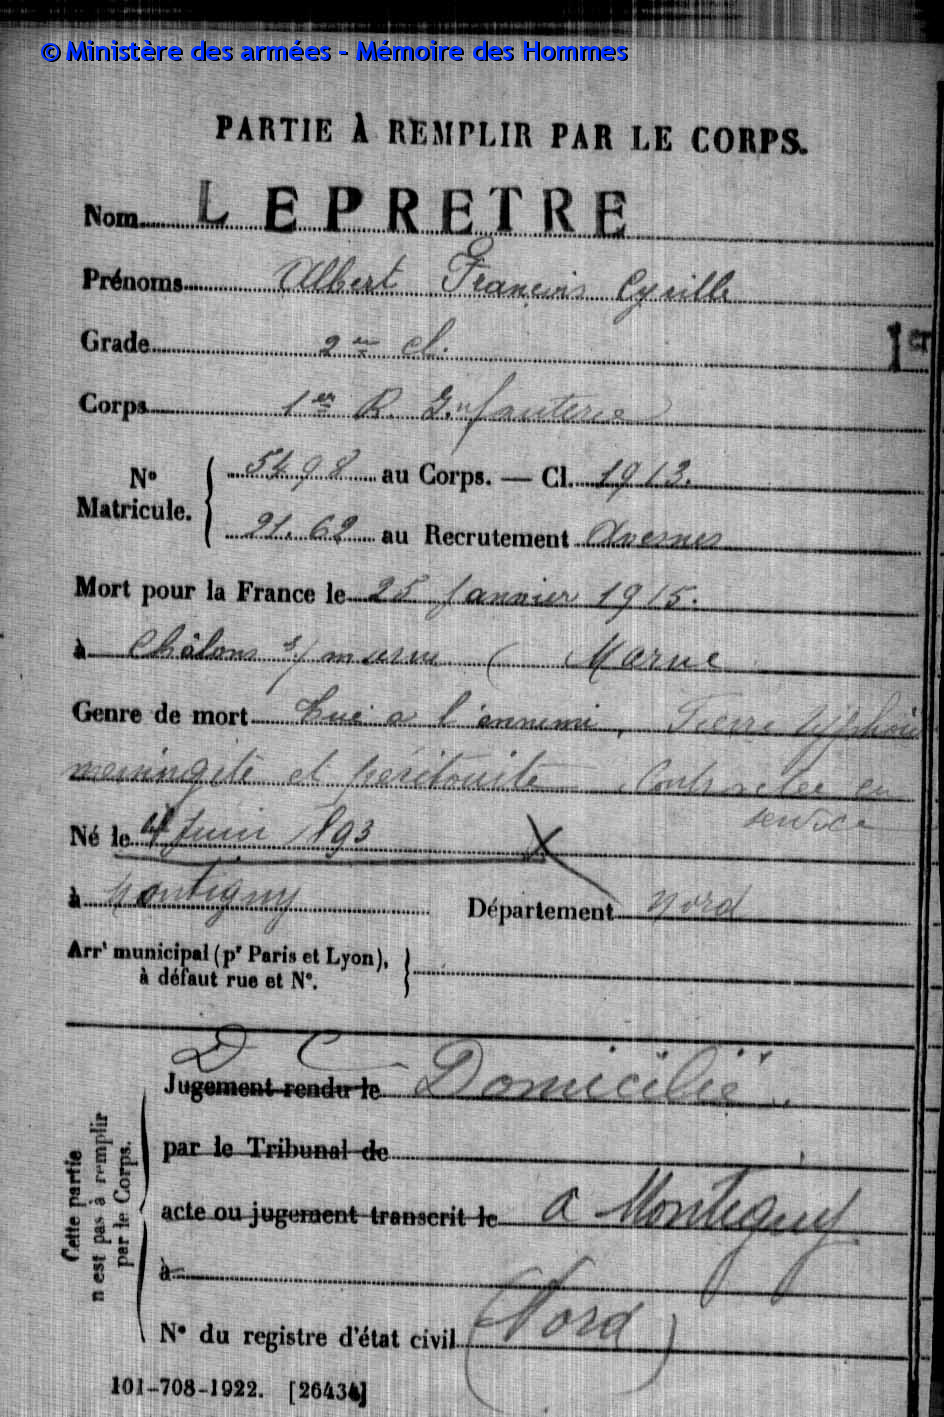 © Ministère des armées - Mémoire des Hommes
PARTIE À REMPLIR PAR LE CORPS.
Nom LEPRETRE
Prénoms Albert François Cyrille
Grade 2me cl. 1er
Corps 1er R. Infanterie
No Matricule. { 5498 au Corps. — Cl. 1913.
21.62 au Recrutement Avesnes
Mort pour la France le 25 Janvier 1915.
à Châlons s/ marne ( Marne
Genre de mort tué a l'ennemi, Fièvre typhoïde
meningite et péritonite contractée en
service
Né le 4 Juin 1893 X
à Montigny Département Nord
Arrt municipal (pr Paris et Lyon),
à défaut rue et No. }
D C
Jugement rendu le Domicilié
par le Tribunal de
acte ou jugement transcrit le a Montigny
à
No du registre d'état civil (Nord)
Cette partie
n'est pas à remplir
par le Corps.
101-708-1922. [26434]